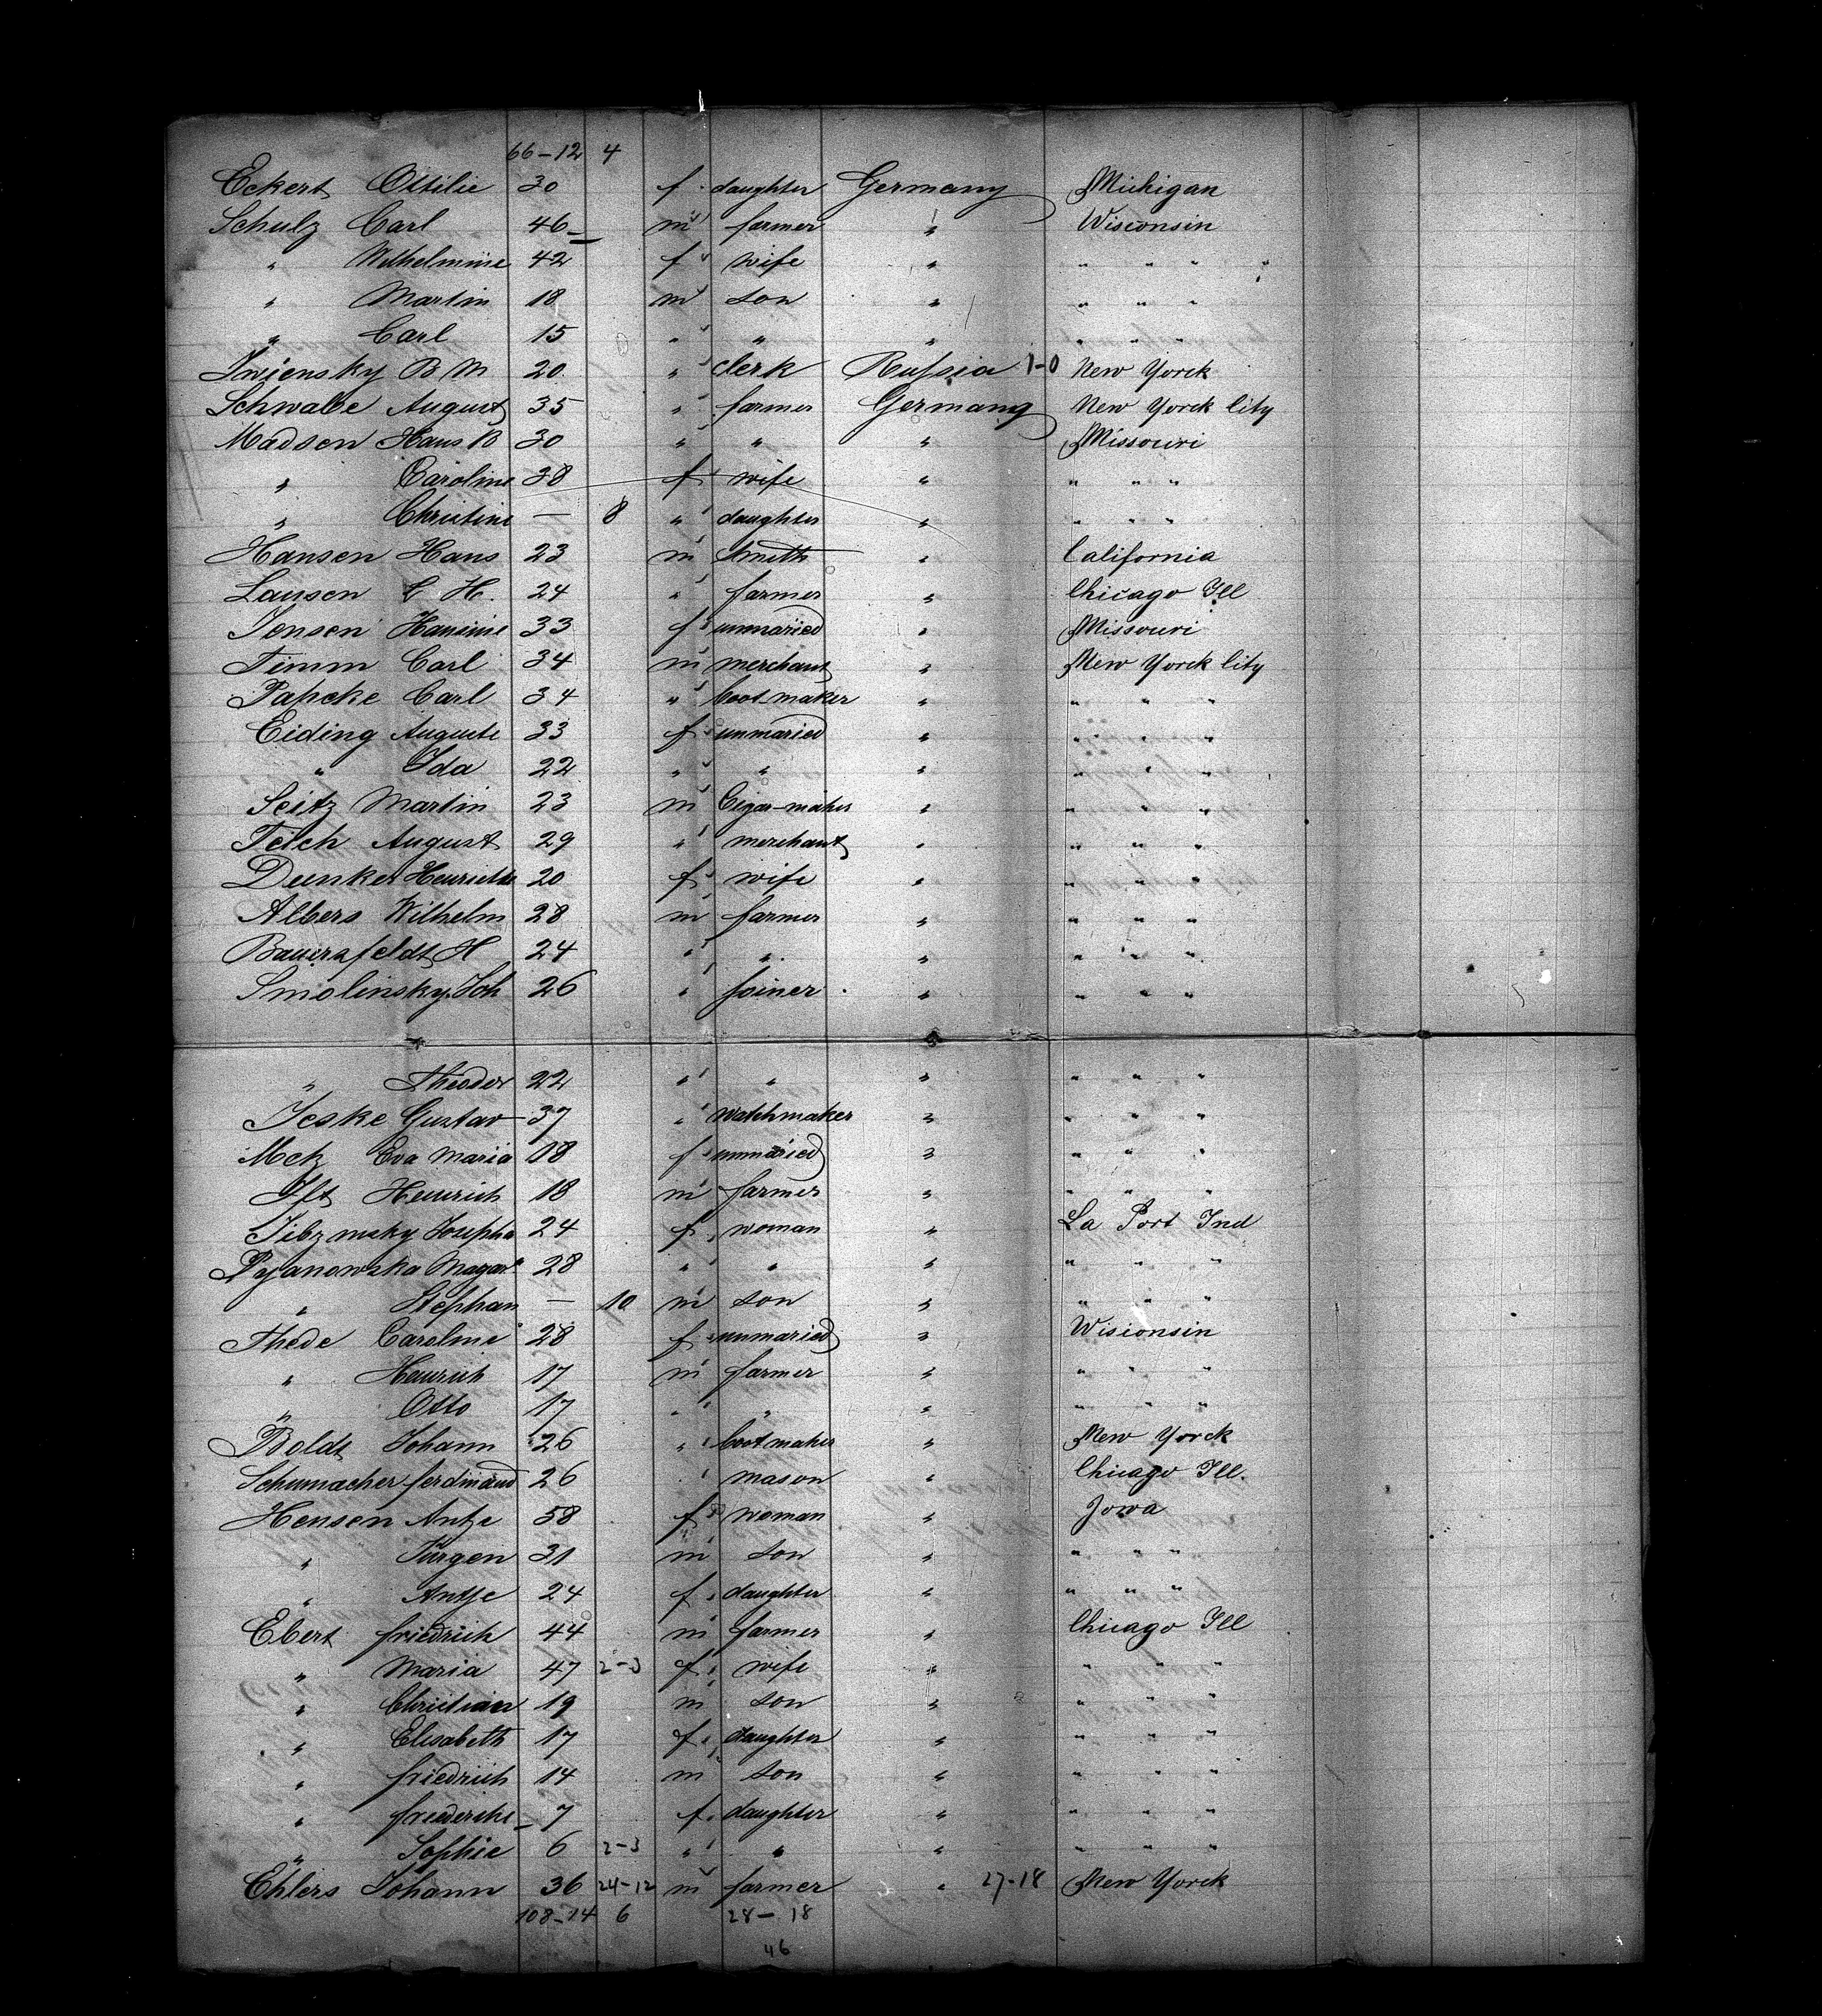 66-12 4
Eckert Ottilie 30 f daughter Germany Michigan
Schulz Carl 46 m farmer " Wisconsin
" Wilhelmine 42 f wife " " " "
" Martin 18 m son " " " "
" Carl 15 " " " " " "
B M 20 " clerk Russia 1-0 New Yorck
Schwabe August 35 " farmer Germany New Yorck City
Madsen Hans B 30 " " " Missouri
" Caroline 38 f wife " " " "
" Christine — 8 " daughter " " " "
Hansen Hans 23 m smith " California
Lausen C H. 24 " farmer " Chicago Ill
Jensen Hansine 33 f unmaried " Missouri
Timm Carl 34 m merchant " New Yorck City
Papcke Carl 34 " boot-maker " " " "
Eiding Auguste 33 f unmaried " " " "
" Ida 22 " " " " " "
Seitz Martin 23 m Cigar-maker " " " "
August 29 " merchant " " " "
Dunker Henriette 20 f wife " " " "
Albers Wilhelm 28 m farmer " " " "
Bauersfeldt H 24 " " " " " "
Smolinsky Joh 26 " joiner " " " "
" Theodor 22 " " " " " "
Jeske Gustav 37 " watchmaker " " " "
Eva Maria 18 f unmaried " " " "
Ift Heinrich 18 m farmer " " " "
Josepha 24 f woman " La Port Ind
28 " " " " " "
" Stephan — 10 m son " " " "
Thede Caroline 28 f unmaried " Wisconsin
" Heinrich 17 m farmer " " " "
" Otto 17 " " " " " "
Boldt Johann 26 " boot maker " New Yorck
Schumacher Ferdinand 26 " mason " Chicago Ill.
Hensen Antje 58 f woman " Jowa
" Jürgen 31 m son " " " "
" Antje 24 f daughter " " " "
Ebert Friedrich 44 m farmer " Chicago Ill
" Maria 47 2-3 f wife " " " "
" Christian 19 m son " " " "
" Elisabeth 17 f daughter " " " "
" Friedrich 14 m son " " " "
" Friederike 7 f daughter " " " "
" Sophie 6 2-3 " " " " " "
Ehlers Johann 36 24-12 m farmer " 27-18 New Yorck
108-14 6 28-18
46